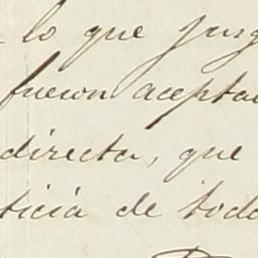 lo que juzg
fueron acepta
directa, que
ticia de todo